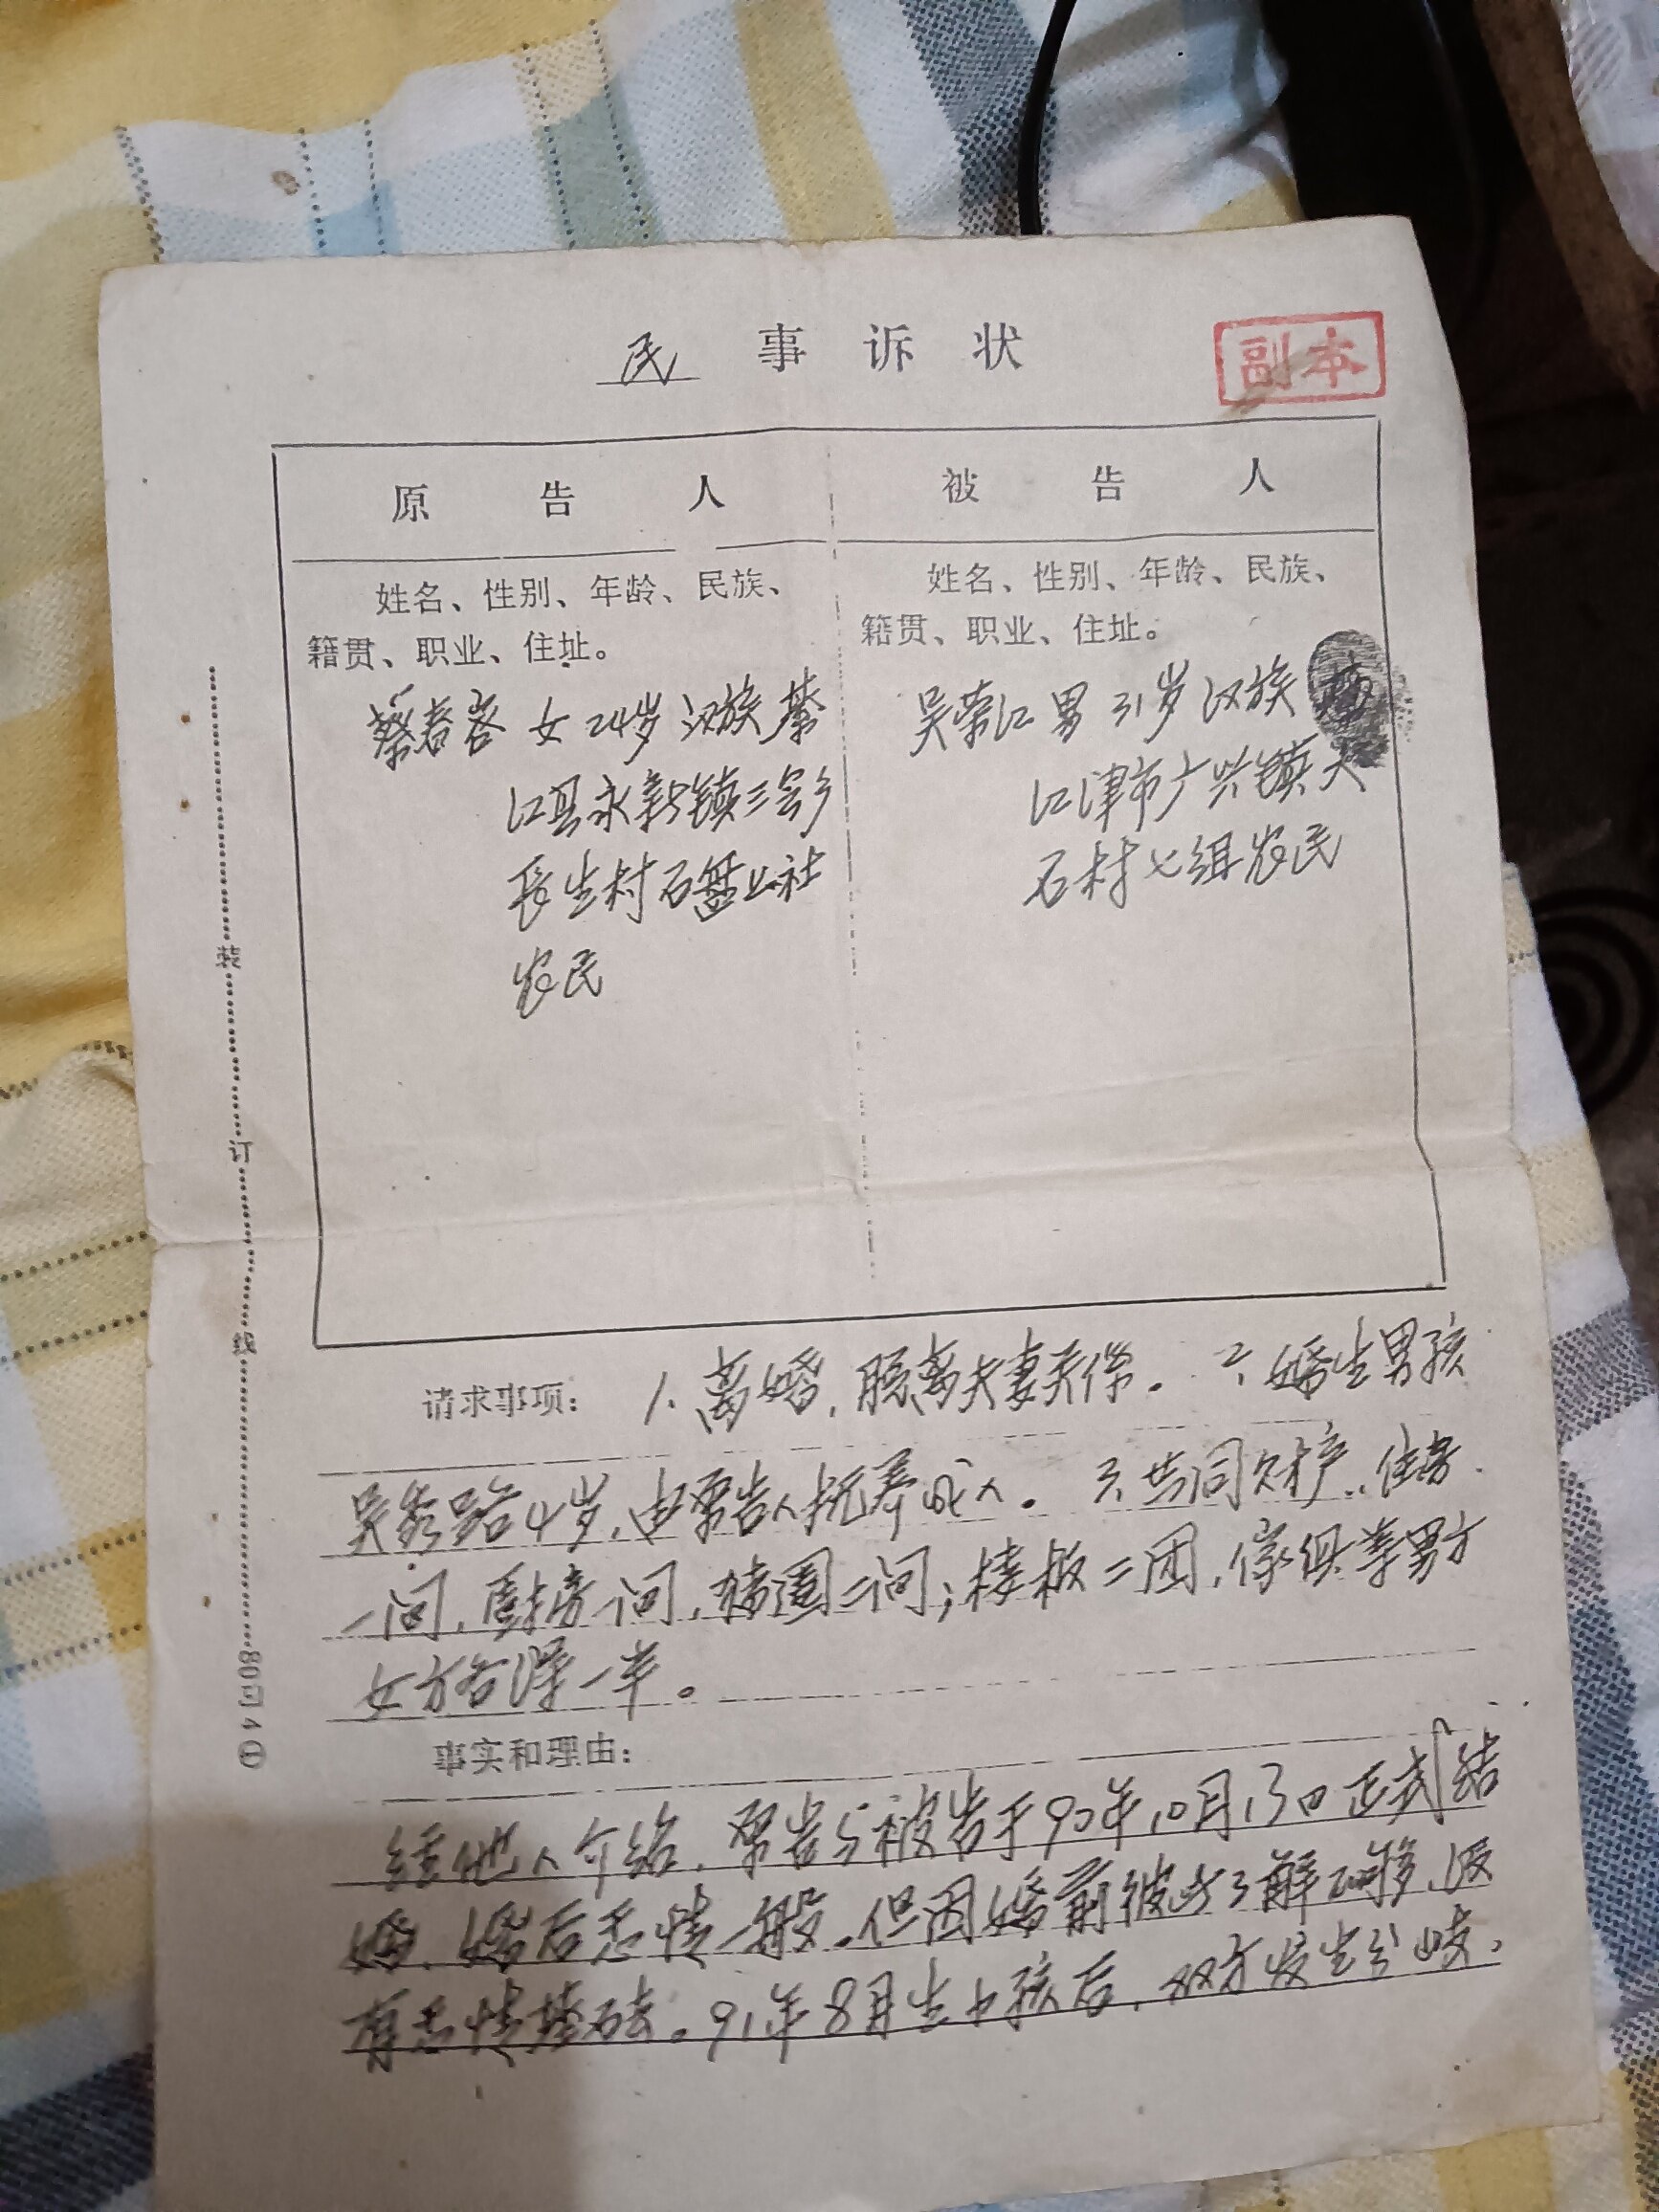 民事诉状
副本
原告人
被告人
姓名、性别、年龄、民族、
籍贯、职业、住址。
姓名、性别、年龄、民族、
籍贯、职业、住址。
蔡春容 女 24岁 汉族 綦
江县永新镇三会乡
长生村石盘上社
农民
吴荣江 男 31岁 汉族
江津市广兴镇大
石村七组农民
请求事项: 1、离婚,脱离夫妻关系。 2、婚生男孩
吴 4岁,由原告人抚养成人。 3、共同财产,住房
一间,厨房一间,猪圈二间;楼板二团,傢俱等男方
女方各得一半。
事实和理由:
经他人介绍,原告与被告于90年10月13日正式结
婚,婚后感情一般。但因婚前彼此了解不够,没
有感情基础。91年8月生小孩后,双方发生分歧,
装
订
线
80司4①